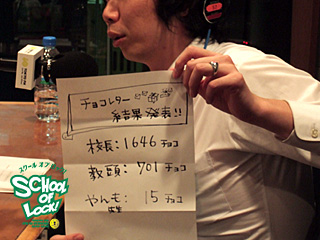 チョコレター
結果発表!!
校長:1646チョコ
教頭:701チョコ
やんも:15チョコ
先生
スクール オブ ロック!
SCHOOL
OF
LOCK!